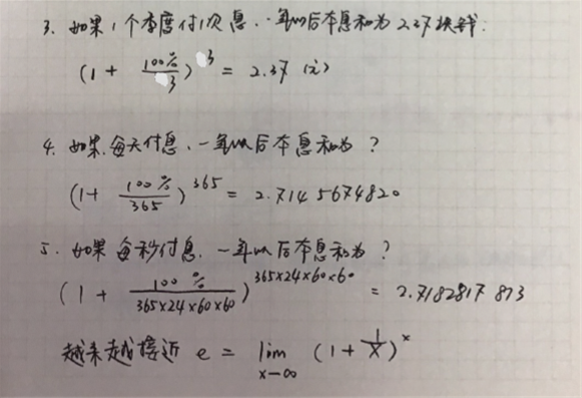 3. 如果1个季度付1次息，一年以后本息和为2.37块钱：
(1 + 100%/3)^3 = 2.37 (元)
4. 如果每天付息，一年以后本息和为？
(1+ 100%/365)^365 = 2.7145674820
5. 如果每秒付息，一年以后本息和为？
(1 + 100%/(365×24×60×60))^(365×24×60×60) = 2.7182817813
越来越接近 e = lim x→∞ (1+1/x)^x